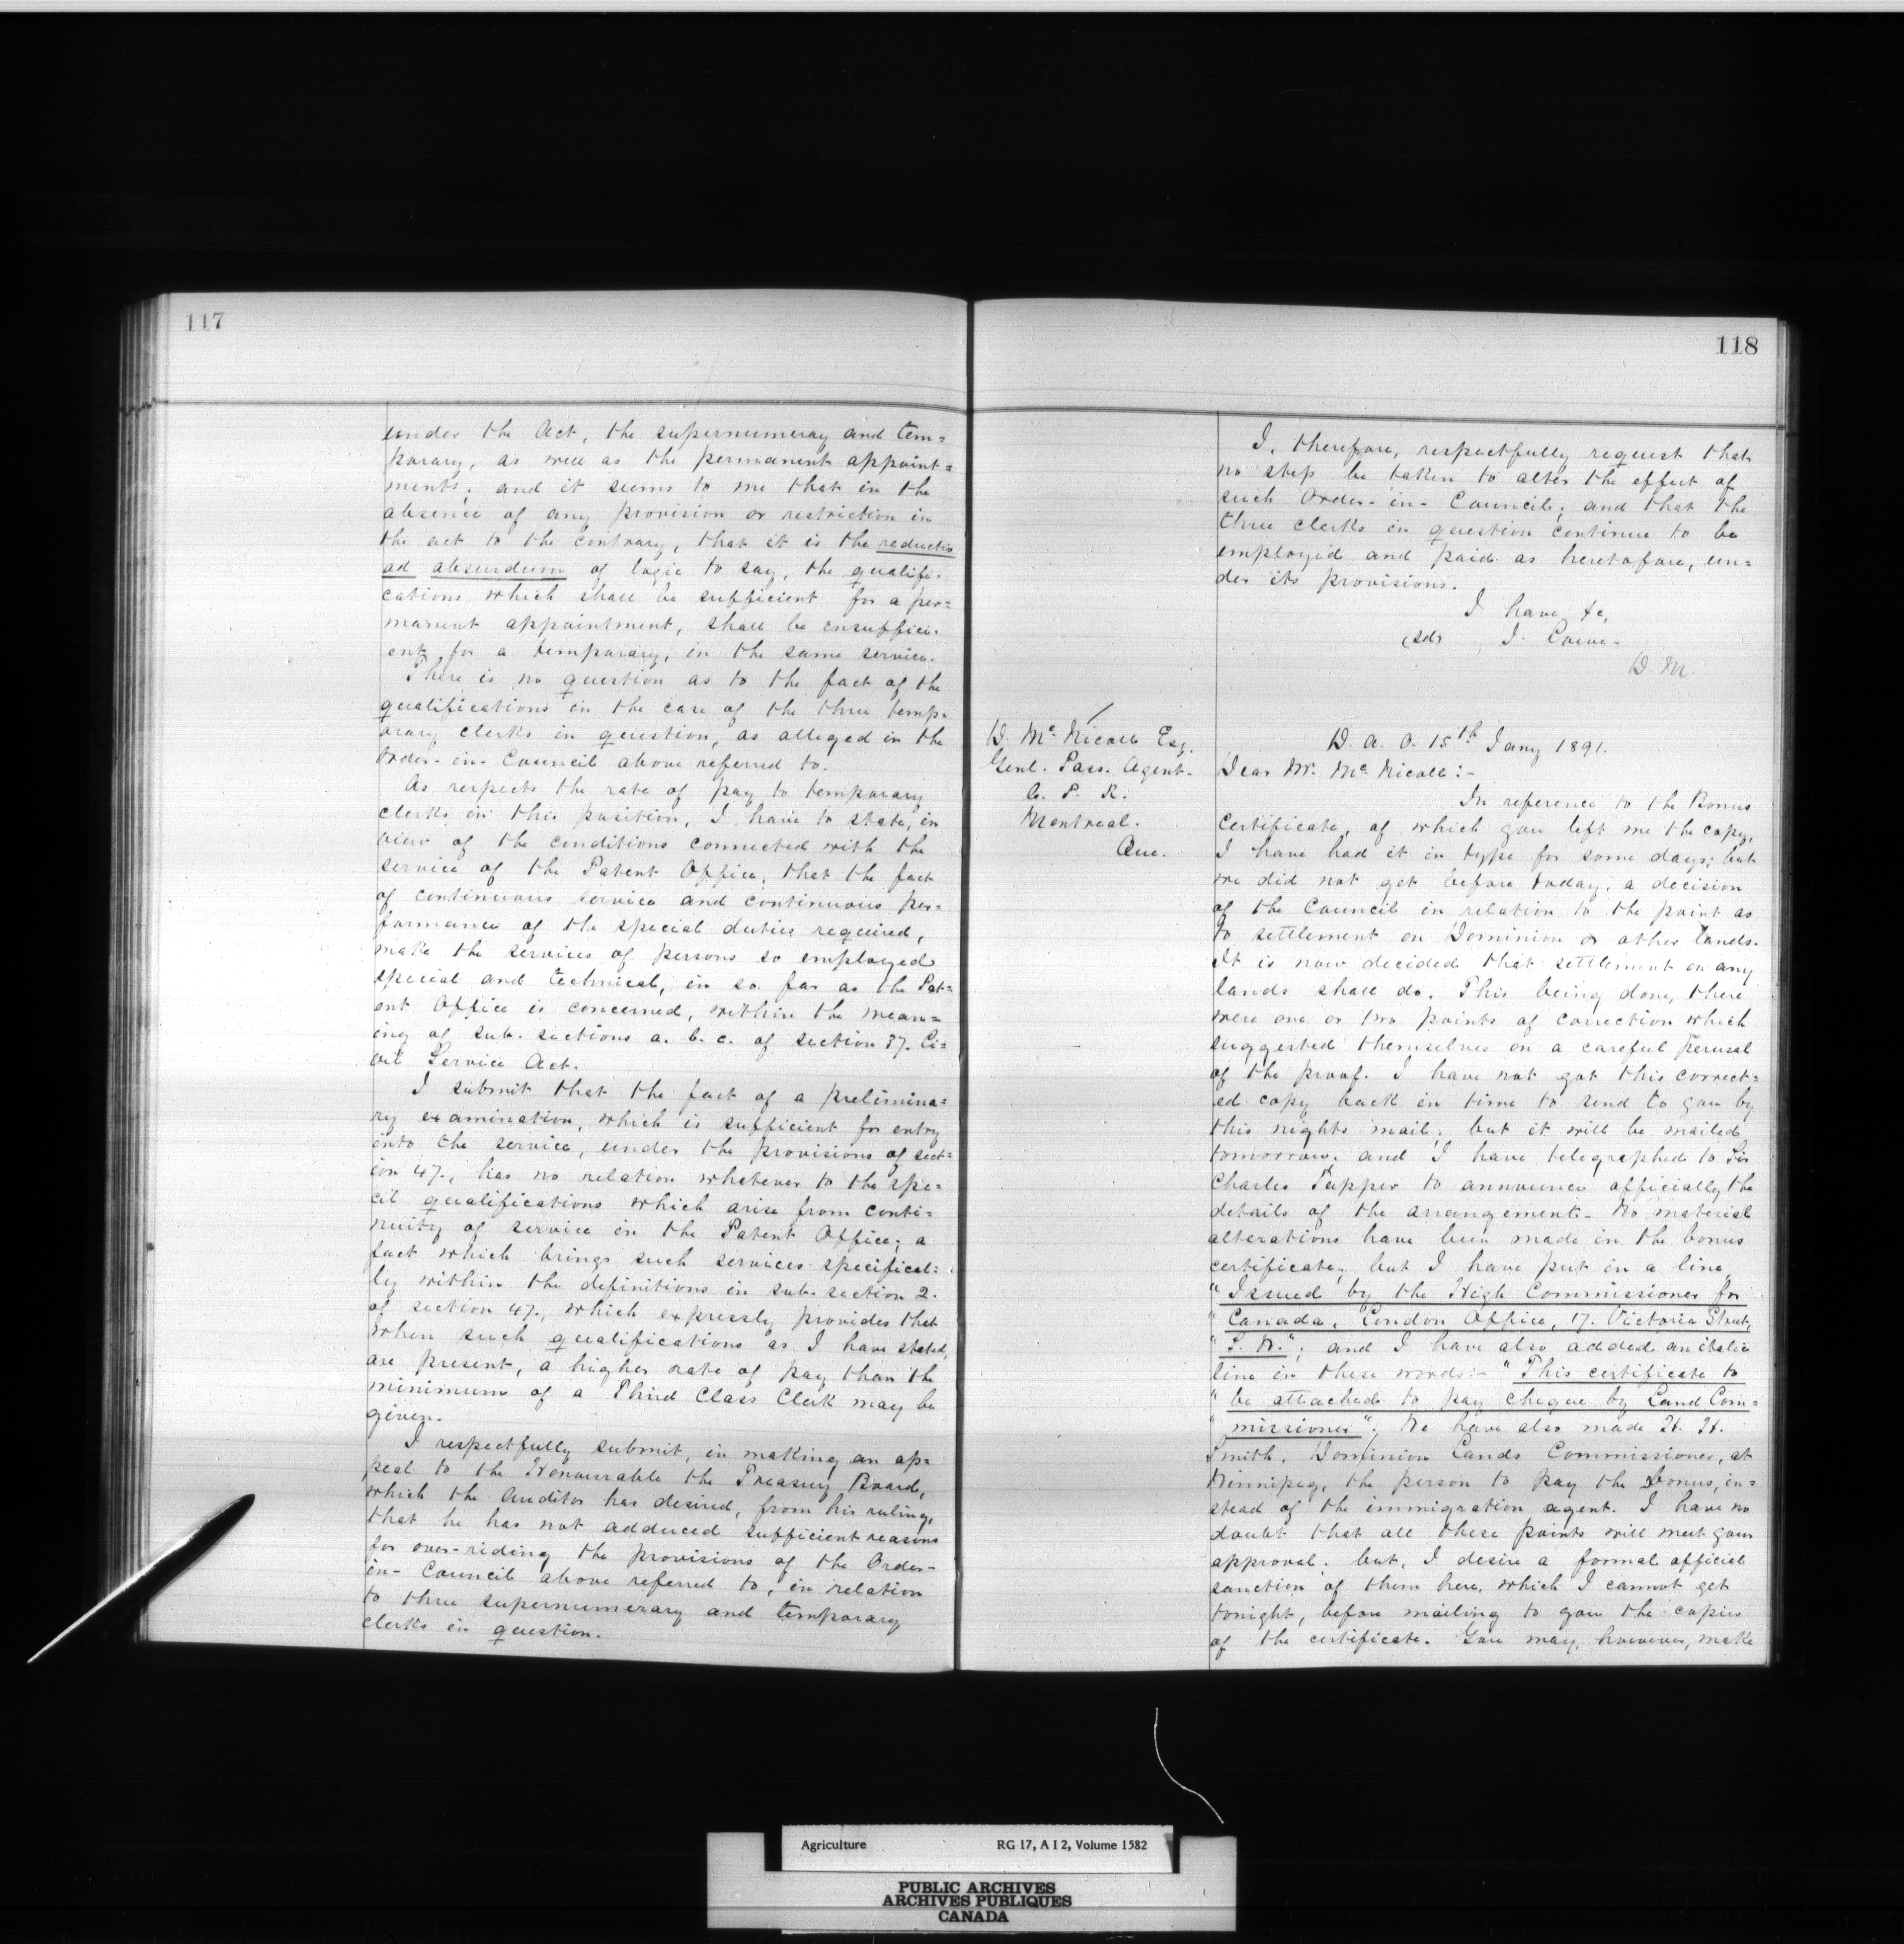 117
under the Act, the supernumeray and tem=
porary, as well as the permanent appoint=
ments; and it seems to me that in the
absence of any provision or restriction in
the act to the contrary, that it is the reductio
ad absurdum of logic to say, the qualifi-
cations which shall be sufficient for a per=
manent appointment, shall be insuffici-
ent, for a temporary, in the same service.
There is no question as to the fact of the
qualifications in the case of the three temp-
orary clerks in question, as alleged in the
Order-in-Council above referred to.
As respects the rate of pay to temporary
clerks in this position, I have to state, in
view of the conditions connected with the
service of the Patent Office, that the fact
of continuous service and continuous per=
formance of the special duties required,
make the services of persons so employed
special and technical, in so far as the Pat=
ent Office is concerned, within the mean=
ing of sub. sections a. b. c. of section 37. Ci=
vil Service Act.
I submit that the fact of a prelimina=
ry examination, which is sufficient for entry
into the service, under the provisions of sect=
ion 47., has no relation whatever to the spe=
cil qualifications which arise from conti=
nuity of service in the Patent Office; a
fact which brings such services specifical=
ly within the definitions in sub. section 2.
of section 47., which expressly provides that
when such qualifications as I have stated,
are present, a higher rate of pay than the
minimum of a Third Class Clerk may be
given.
I respectfully submit, in making an ap=
peal to the Honourable the Treasury Board,
which the Auditor has desired, from his ruling,
that he has not adduced sufficient reasons
for over-riding the provisions of the Order-
in-Council above referred to, in relation
to three supernumerary and temporary
clerks in question.
118
I, therefore, respectfully request that
no step be taken to alter the effect of
such Order-in-Council; and that the
three clerks in question continue to be
employed and paid as heretofore, un=
der its provisions.
I have &c,
(sd) J. Lowe.
D. M.
D. McNicoll Esq.
Genl. Pass. Agent.
C. P. R.
Montreal.
Que.
D. A. O. 15th Jany 1891.
Dear Mr. McNicoll:-
In reference to the Bonus
Certificate, of which you left me the copy,
I have had it in type for some days; but
we did not get before today, a decision
of the Council in relation to the point as
to settlement on Dominion or other lands.
It is now decided that settlement on any
lands shall do. This being done, there
were one or two points of correction which
suggested themselves on a careful perusal
of the proof. I have not got this correct=
ed copy back in time to send to you by
this nights mail; but it will be mailed
tomorrow, and I have telegraphed to Sir
Charles Tupper to announce officially the
details of the arrangement. No material
alterations have been made in the bonus
certificate; but I have put in a line
"Issued by the High Commissioner for
"Canada, London Office, 17. Victoria Street,
"S. W."; and I have also added an italic
line in these words:- "This certificate to
"be attached to pay cheque by Land Com=
"missioner". We have also made H. H.
Smith, Dominion Lands Commissioner, at
Winnipeg, the person to pay the bonus, in=
stead of the immigration agent. I have no
doubt that all these points will meet your
approval; but, I desire a formal official
sanction of them here, which I cannot get
tonight, before mailing to you the copies
of the certificate. You may, however, make
Agriculture RG 17, A I 2, Volume 1582
PUBLIC ARCHIVES
ARCHIVES PUBLIQUES
CANADA